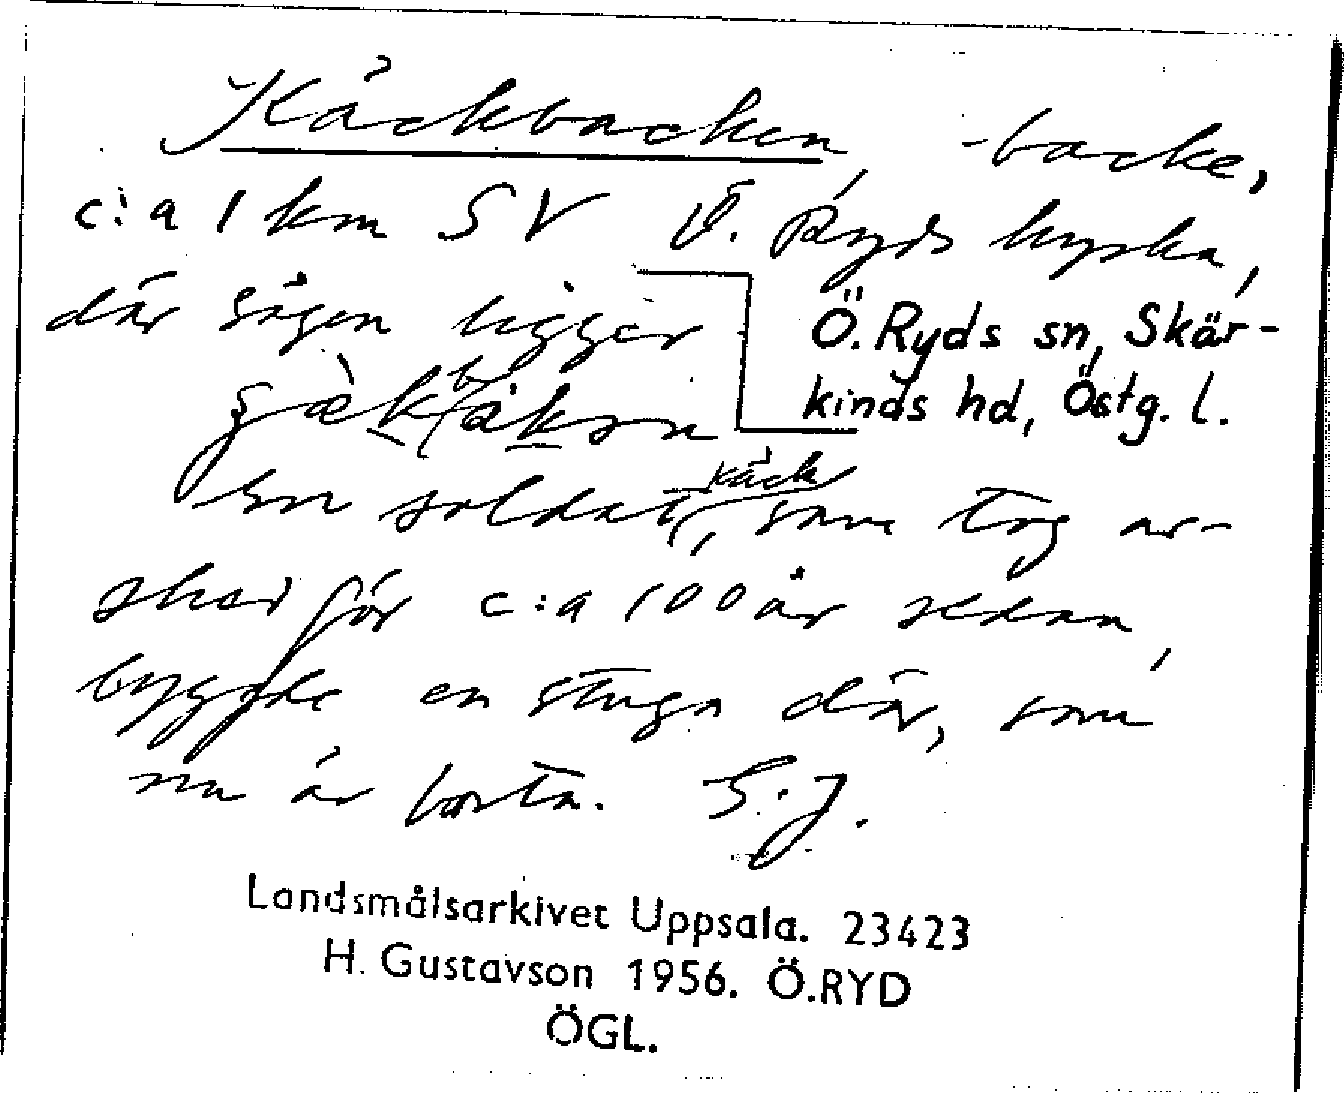 Käckbacken, backe,
c:a 1 km SV Ö. Ryds kyrka,
där vägen ligger
Ö. Ryds sn, Skär-
kinds hd, Östg. l.
En soldat, Käck som tog av-
sked för c:a 100 år sedan,
byggde en stuga där, som
nu är borta. S.J.
Landsmålsarkivet Uppsala. 23423
H. Gustavson 1956. Ö.RYD
ÖGL.